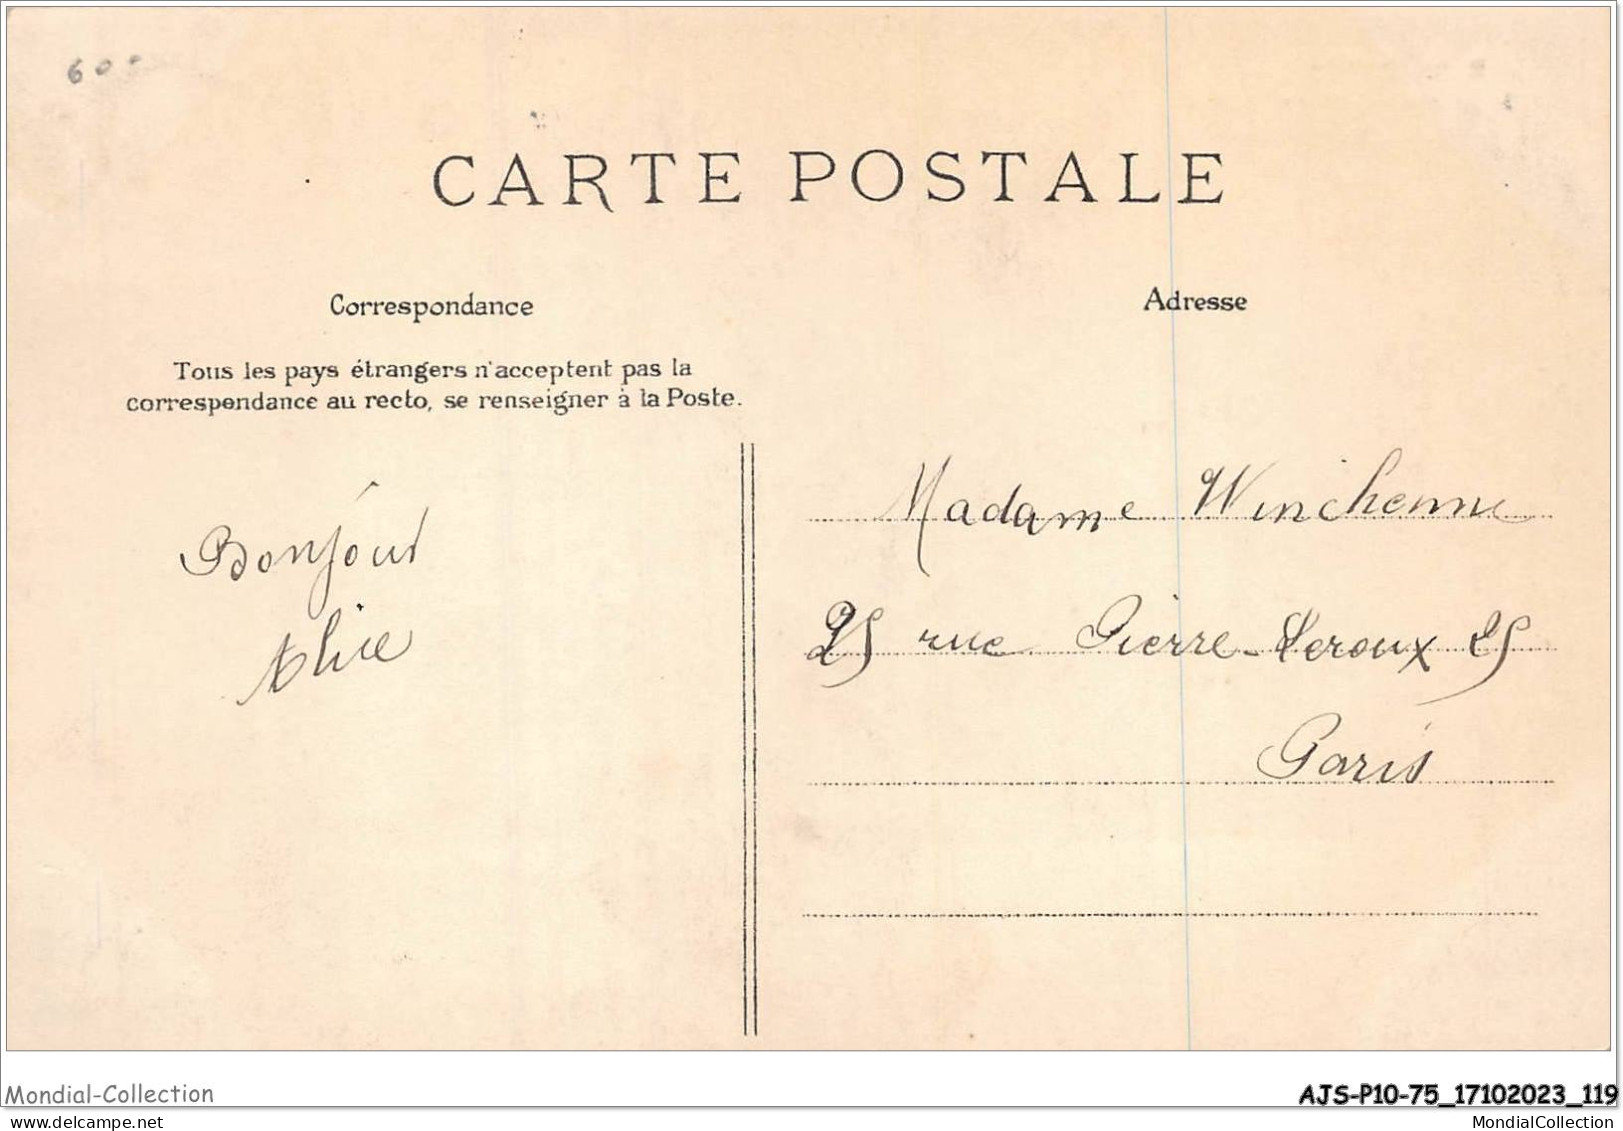 60
CARTE POSTALE
Correspondance
Tous les pays étrangers n'acceptent pas la
correspondance au recto, se renseigner à la Poste.
Bonjour
Alice
Adresse
Madame Winchenne
25 rue Pierre-Leroux 25
Paris
Mondial-Collection
AJS-P10-75_17102023_119
delcampe.net
MondialCollection